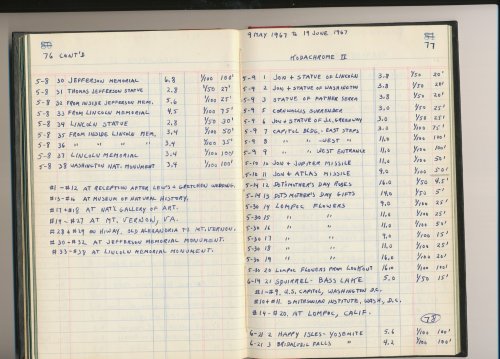 76 CONT'D
5-8 30 JEFFERSON MEMORIAL 6.8 1/100 100'
5-8 31 THOMAS JEFFERSON STATUE 2.8 1/50 27'
5-8 32 FROM INSIDE JEFFERSON MEM. 5.6 1/100 25'
5-8 33 FROM LINCOLN MEMORIAL 4.5 1/100 75'
5-8 34 LINCOLN STATUE 2.8 1/50 30'
5-8 35 FROM INSIDE LINCOLN MEM. 3.4 1/100 50'
5-8 36 " " " 3.4 1/100 35'
5-8 37 LINCOLN MEMORIAL 3.4 1/100 100'
5-8 38 WASHINGTON NAT. MONUMENT 3.4 1/100 100'
#1-#12 AT RECEPTION AFTER LOUIS & GRETCHEN WEDDING.
#13-#16 AT MUSEUM OF NATURAL HISTORY.
#17+#18 AT NAT'L GALLERY OF ART.
#19-#27 AT MT. VERNON, VA.
#28+#29 ON HIWAY, OLD ALEXANDRIA TO MT. VERNON.
#30-#32 AT JEFFERSON MEMORIAL MONUMENT.
#33-#37 AT LINCOLN MEMORIAL MONUMENT.
9 MAY 1967 TO 19 JUNE 1967
77
KODACHROME II
5-9 1 JON + STATUE OF LINCOLN 3.8 1/50 20'
5-9 2 JON + STATUE OF WASHINGTON 3.8 1/50 20'
5-9 3 STATUE OF FATHER SERRA 3.8 1/50 20'
5-9 5 CORNWALLIS SURRENDER 3.0 1/50 25'
5-9 6 JON + STATUE OF J.C. GREENWAY 3.0 1/50
5-9 7 CAPITOL BLDG. - EAST STEPS 8.0 1/100
5-9 8 " " - WEST " 11.0 1/100
5-9 9 " " - WEST ENTRANCE 11.0 1/100 100'
5-10 10 JON + JUPITER MISSILE 11.0 1/50
5-10 11 JON + ATLAS MISSILE 9.0 1/100 50'
5-14 12 DOT MOTHER'S DAY ROSES 16.0 1/50 4.5'
5-14 13 DOTS MOTHER'S DAY GIFTS 14.0 1/50 5'
5-30 14 LOMPOC FLOWERS 9.0 1/100 25'
5-30 15 " " 11.0 1/100 25'
5-30 16 " " 11.0 1/100 50'
5-30 17 " " 9.0 1/100 15'
5-30 18 " " 11.0 1/100 25'
5-30 19 " " 16.0 1/100 20'
5-30 20 LOMPOC FLOWERS FROM LOOKOUT 16.0 1/100 100'
6-19 21 SQUIRREL - BASS LAKE 5.0 1/50 15'
#1-#9, U.S. CAPITOL, WASHINGTON D.C.
#10+#11. SMITHSONIAN INSTITUTE, WASH, D.C.
#14-#20. AT LOMPOC, CALIF.
78
6-21 2 HAPPY ISLES - YOSEMITE 5.6 1/100 100'
6-21 3 BRIDALVEIL FALLS " 4.2 1/100 100'